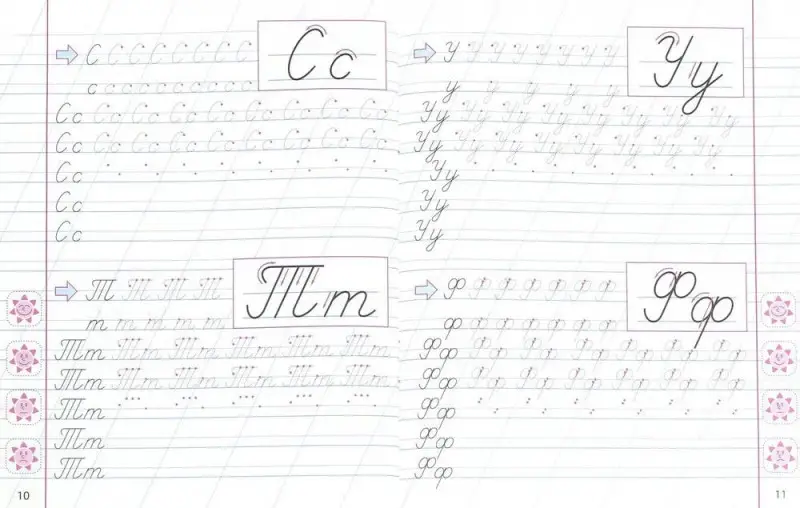 С С С С С С С С
Сс
с с с с с с с с с с
Сс Сс Сс Сс Сс Сс Сс Сс Сс
Сс Сс Сс Сс Сс Сс Сс Сс Сс
Сс
Сс
Сс
Т Т Т Т
Тт
т т т т т
Тт Тт Тт Тт Тт Тт
Тт Тт Тт Тт Тт Тт
Тт
Тт
Тт
10
У У У У У У У У
Уу
у у у у у
Уу Уу Уу Уу Уу Уу Уу Уу
Уу Уу Уу Уу Уу Уу Уу Уу
Уу
Уу
Уу
Ф Ф Ф Ф Ф Ф Ф
Фф
ф ф ф ф ф ф ф
Фф Фф Фф Фф Фф Фф Фф
Фф Фф Фф Фф Фф Фф Фф
Фф
Фф
Фф
11